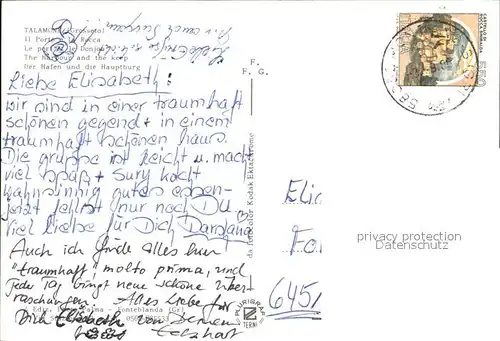 TALAMONE (Grosseto)
Il Porto e la Rocca
Le port et le Donjon
The Harbour and the keep
Der Hafen und die Hauptburg
F. G.
F.
Liebe Elisabeth:
wir sind in einer traumhaft
schönen gegend + in einem
traumhaft schönen haus.
Die gruppe ist leicht u. macht
viel spaß + Sury kocht
wahnsinnig gutes essen-
jetzt fehlst nur noch Du
viel liebe für Dich
Auch ich finde alles hier
"traumhaft", molto prima, und
jeder Tag bringt neue schöne über-
raschungen. Alles Liebe für
Dich Elisabeth von Deinem
Eckhart
Fonteblanda (Gr)
da fotocolor Kodak Ektachrome
PLURIGRAF
TERNI
CASTELLO DI
ROCCA SINIBALDA
550
Elis
6451
privacy protection
Datenschutz